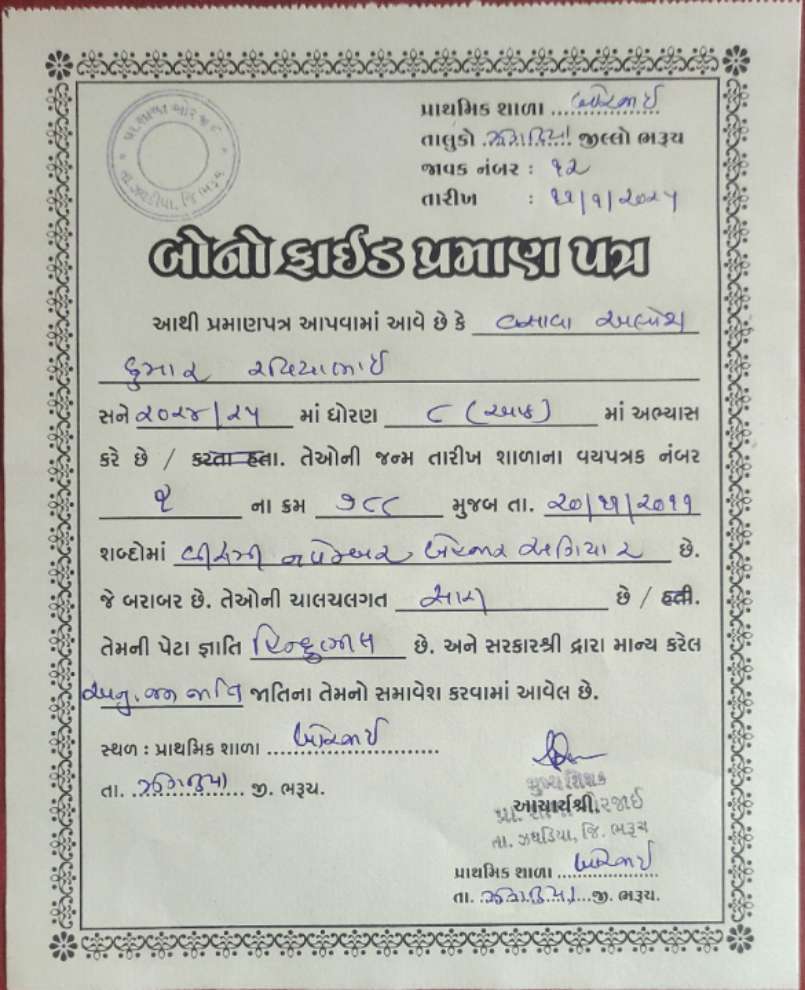 પ્રા. શાળા ઓરજાઈ
તા. ઝઘડીયા, જિ. ભરૂચ
પ્રાથમિક શાળા ઓરજાઈ
તાલુકો ઝઘડીયા જીલ્લો ભરૂચ
જાવક નંબર : ૧૨
તારીખ : ૨૧/૧/૨૦૨૫
બોનોફાઈડ પ્રમાણ પત્ર
આથી પ્રમાણપત્ર આપવામાં આવે છે કે વસાવા
કુમાર
સને ૨૦૨૪/૨૫ માં ધોરણ ૮ (આઠ) માં અભ્યાસ
કરે છે / કરતા હતા. તેઓની જન્મ તારીખ શાળાના વયપત્રક નંબર
૨ ના ક્રમ ૭૮૮ મુજબ તા. ૨૦/૧૧/૨૦૧૧
શબ્દોમાં વીસમી નવેમ્બર બેહજાર અગિયાર છે.
જે બરાબર છે. તેઓની ચાલચલગત સારી છે / હતી.
તેમની પેટા જ્ઞાતિ હિન્દુભીલ છે. અને સરકારશ્રી દ્રારા માન્ય કરેલ
અનુ. જન જાતિ જાતિના તેમનો સમાવેશ કરવામાં આવેલ છે.
સ્થળ : પ્રાથમિક શાળા ઓરજાઈ
તા. ઝઘડીયા જી. ભરૂચ.
મુખ્ય શિક્ષક
આચાર્યશ્રી.
પ્રા. શાળા ઓરજાઈ
તા. ઝઘડિયા, જિ. ભરૂચ
પ્રાથમિક શાળા ઓરજાઈ
તા. ઝઘડીયા જી. ભરૂચ.